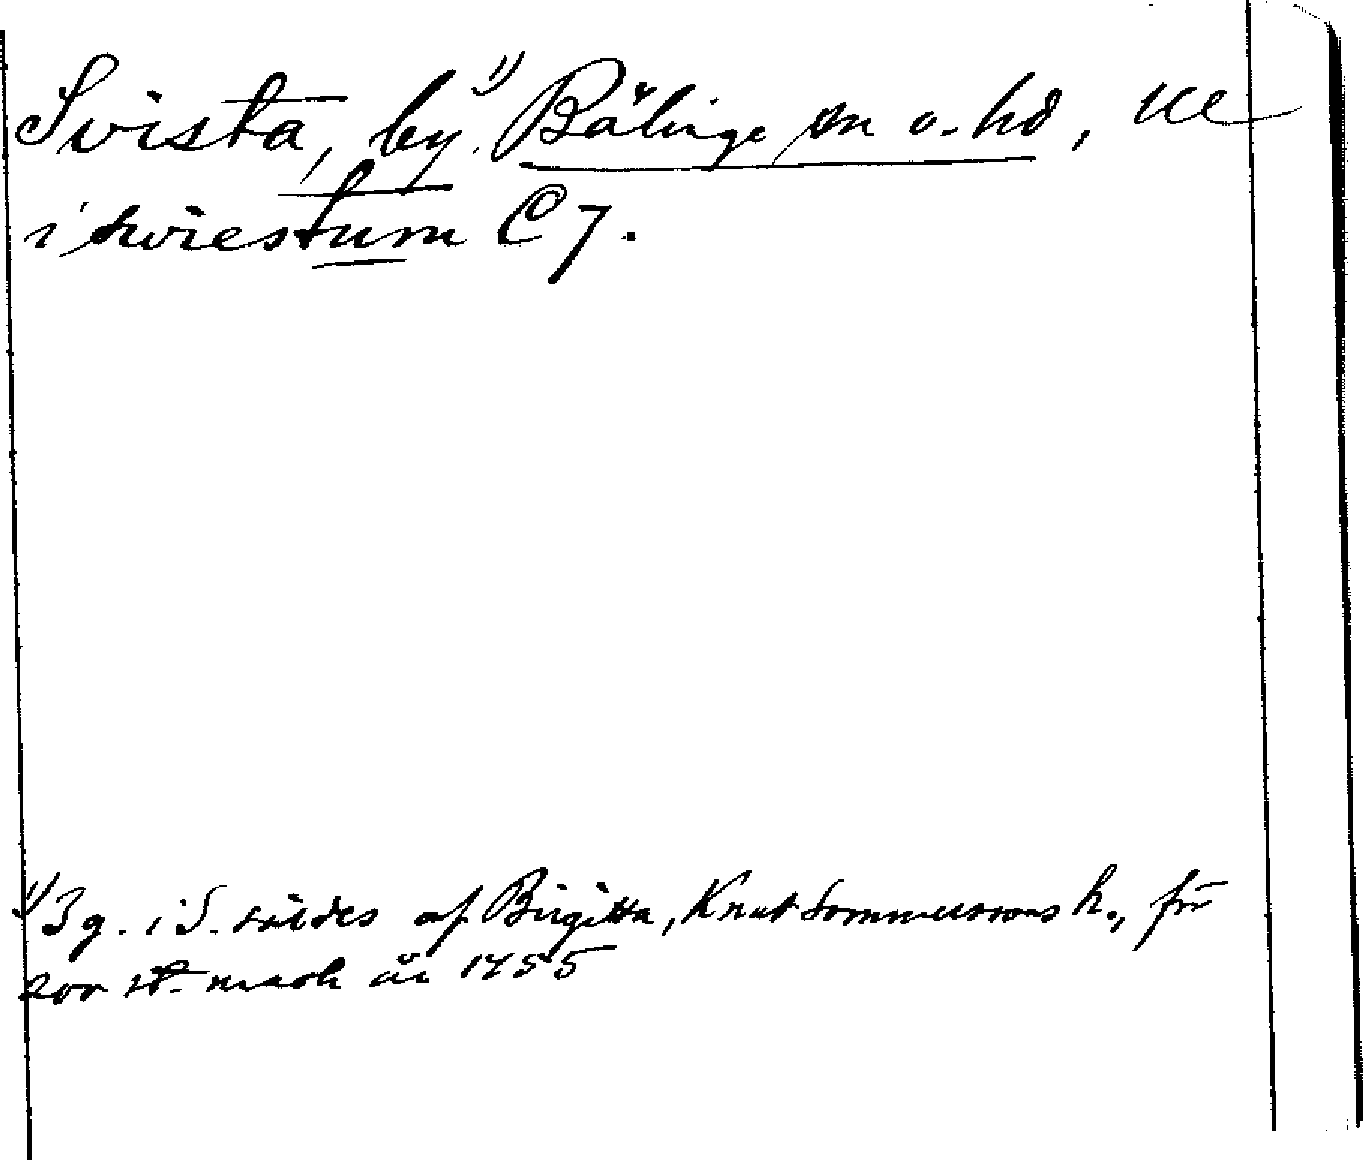 Svista, by ¹⁾ Bälinge sn o. hd, Ul
i swiestum C 7.
¹⁾ 3 g. i S. såldes af Birgitta, Knut h., för
200 st. mark år 1455